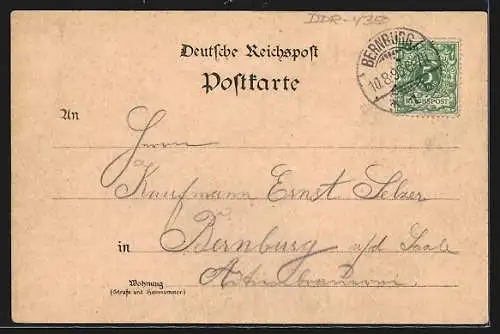 DDR-435
Deutsche Reichspost
Postkarte
BERNBURG
10.8.9
5
REICHSPOST
An
Herrn
Kaufmann Ernst Selzer
in Bernburg a/d Saale
Wohnung
(Straße und Hausnummer)